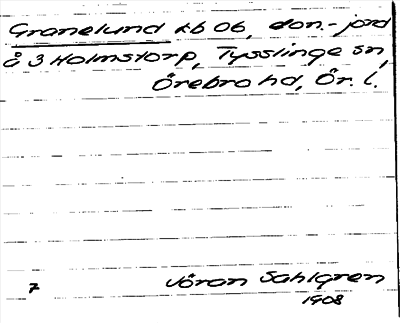 Granelund kb 06, don.-jord
å 3 Holmstorp, Tysslinge sn,
Örebro hd, Ör. l.
7 Jöran Sahlgren
1908